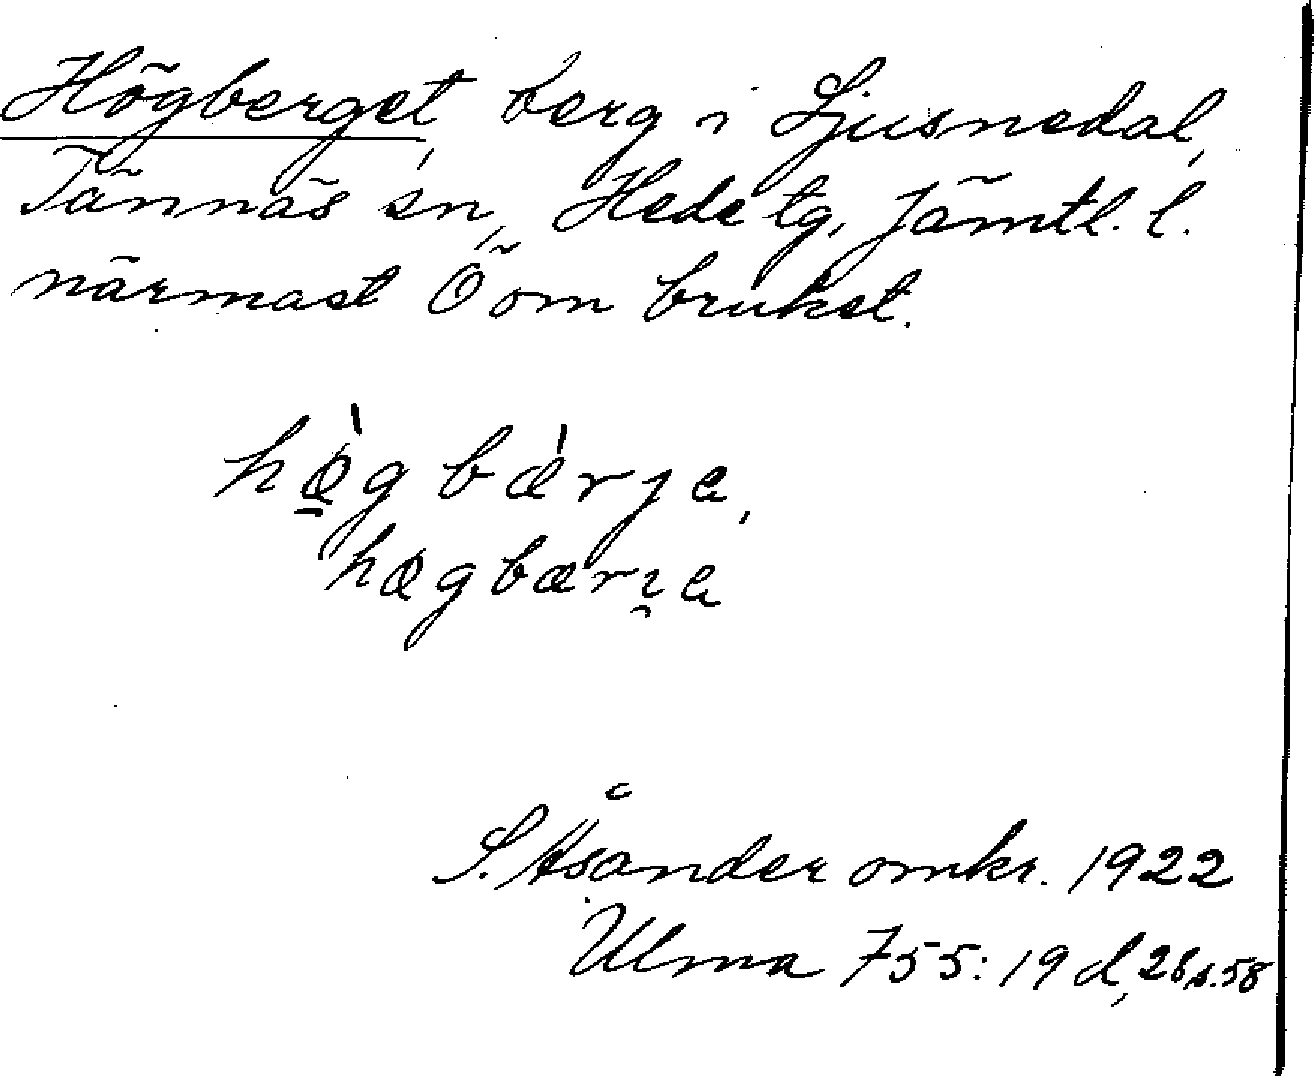 Högberget, berg i Ljusnedal,
Tännäs sn, Hede tg, Jämtl. l.
närmast Ö om brukst.
hæ̠̀gbæ̀rjɐ,
hægbæri̯ɐ
S. Åsander omkr. 1922
Ulma 755: 19 d, 26 s. 58